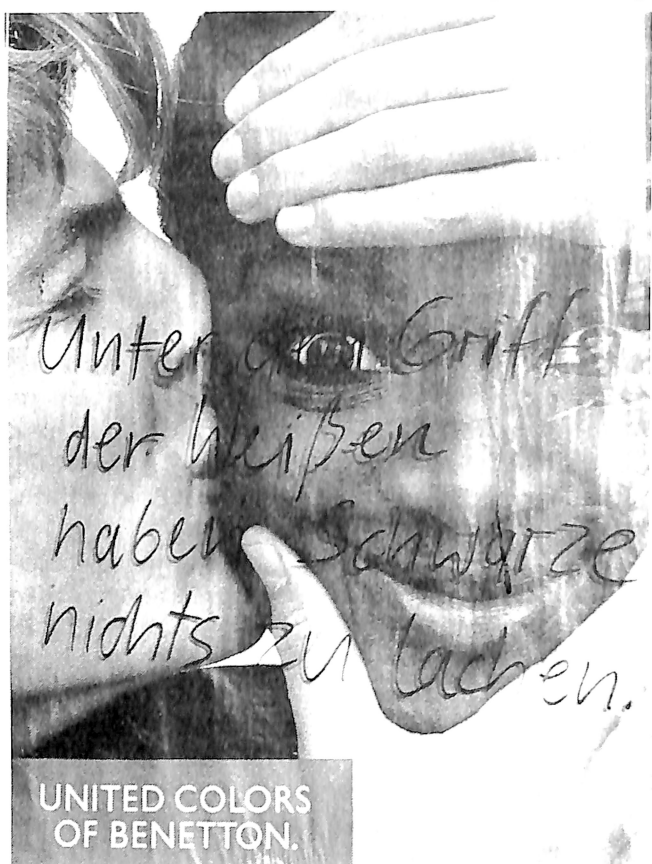 Unter dem Griffe
der Weißen
haben Schwarze
nichts zu lachen.
UNITED COLORS
OF BENETTON.